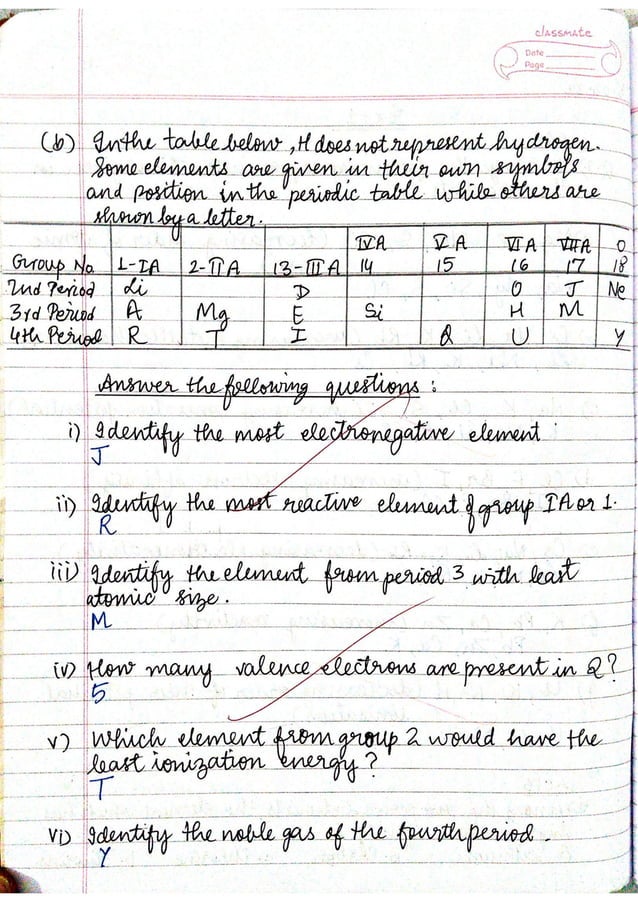 classmate
Date
Page
(b) In the table below, H does not represent hydrogen.
Some elements are given in their own symbols
and position in the periodic table while others are
shown by a letter.
IVA VA VIA VIIA O
Group No. 1-IA 2-IIA 13-IIIA 14 15 16 17 18
2nd Period Li D O J Ne
3rd Period A Mg E Si H M
4th Period R T I Q U Y
Answer the following questions :
i) Identify the most electronegative element
J
ii) Identify the most reactive element of group IA or 1.
R
iii) Identify the element from period 3 with least
atomic size.
M
iv) How many valence electrons are present in Q?
5
v) Which element from group 2 would have the
least ionization energy?
T
vi) Identify the noble gas of the fourth period.
Y